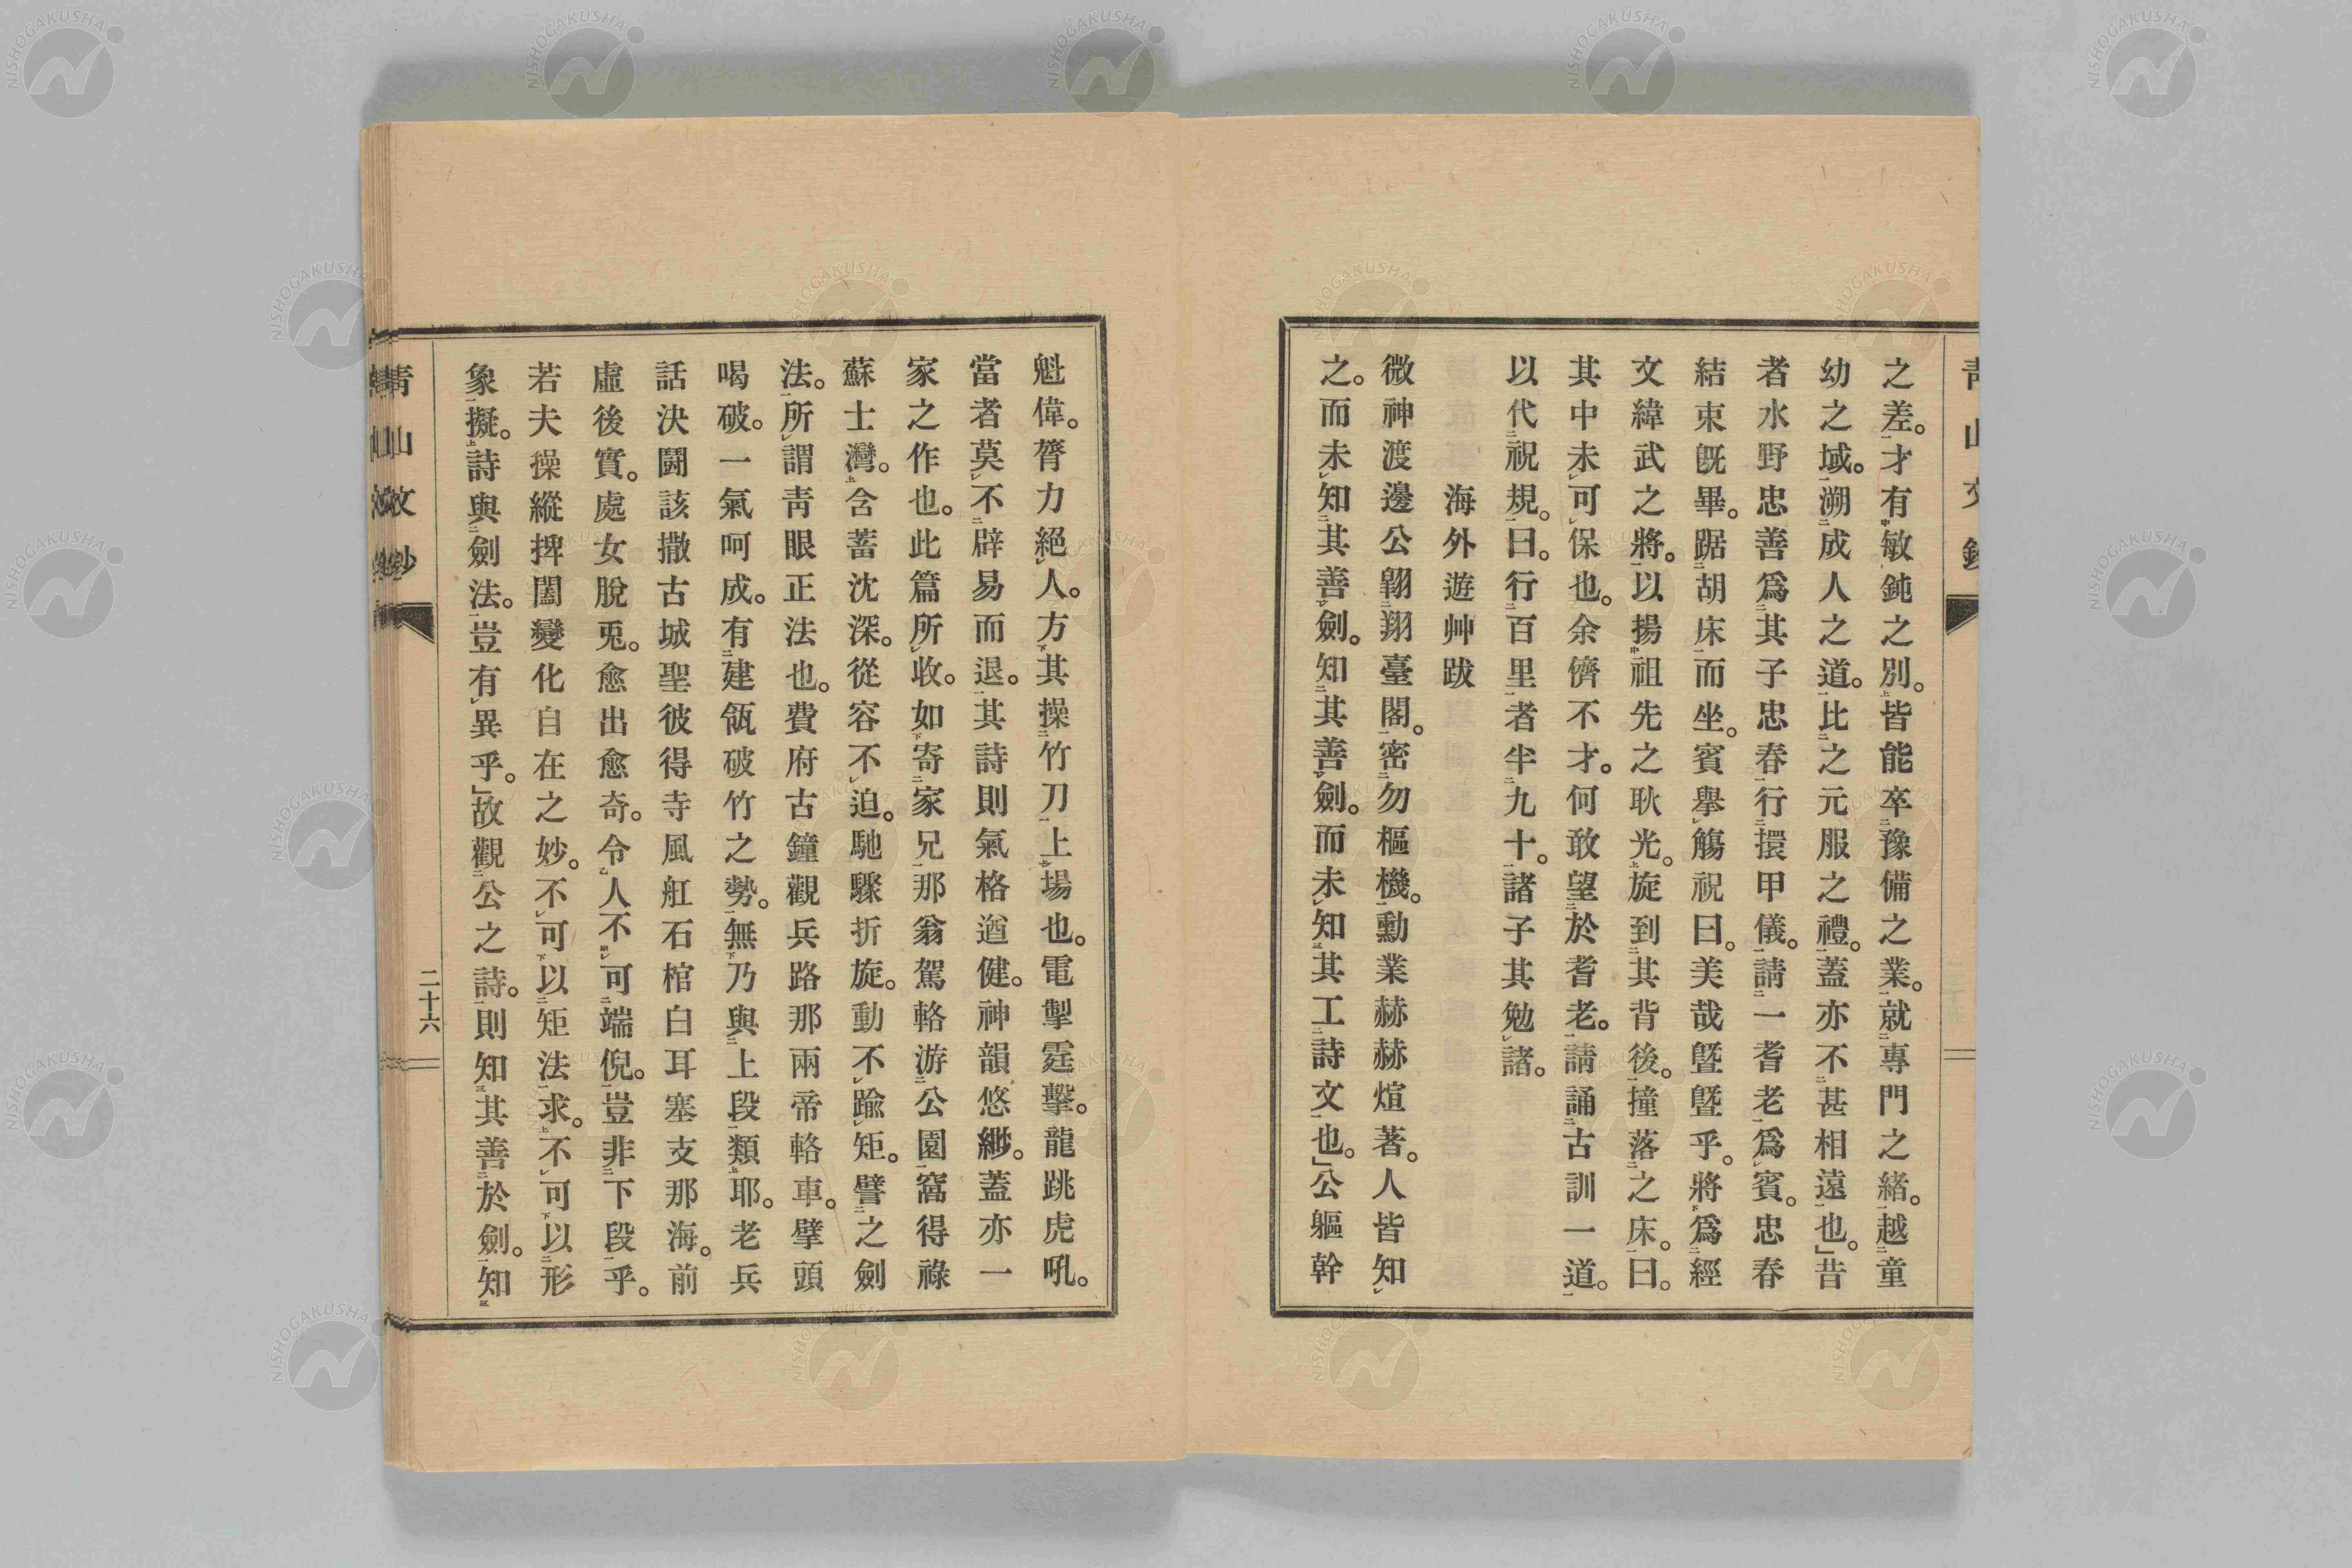 之差。才有敏鈍之別。皆能卒豫備之業。就專門之緒。越童
幼之域。溯成人之道。比之元服之禮。蓋亦不甚相遠也。」昔
者水野忠善爲其子忠春行擐甲儀。請一耆老爲賓。忠春
結束既畢。踞胡床而坐。賓擧觴祝曰。美哉曁曁乎。將爲經
文緯武之將。以揚祖先之耿光。旋到其背後。撞落之床。曰。
其中未可保也。余儕不才。何敢望於耆老。請誦古訓一道。
以代祝規。曰。行百里者半九十。諸子其勉諸。
海外遊艸跋
微神渡邊公翺翔臺閣。密勿樞機。勳業赫赫煊著。人皆知
之。而未知其善劍。知其善劍。而未知其工詩文也。」公軀幹
魁偉。膂力絕人。方其操竹刀上場也。電掣霆擊。龍跳虎吼。
當者莫不辟易而退。其詩則氣格遒健。神韻悠緲。蓋亦一
家之作也。此篇所收。如寄家兄那翁駕輅游公園窩得祿
蘇士灣。含蓄沈深。從容不迫。馳驟折旋。動不踰矩。譬之劍
法。所謂靑眼正法也。費府古鐘觀兵路那兩帝輅車。擘頭
喝破。一氣呵成。有建瓴破竹之勢。無乃與上段類耶。老兵
話決鬪該撒古城聖彼得寺風舡石棺白耳塞支那海。前
虛後實。處女脫兎。愈出愈奇。令人不可端倪。豈非下段乎。
若夫操縱捭闔變化自在之妙。不可以矩法求。不可以形
象擬。詩與劍法。豈有異乎。」故觀公之詩。則知其善於劍。知
靑山文鈔
二十六
靑山文鈔
NISHOGAKUSHA